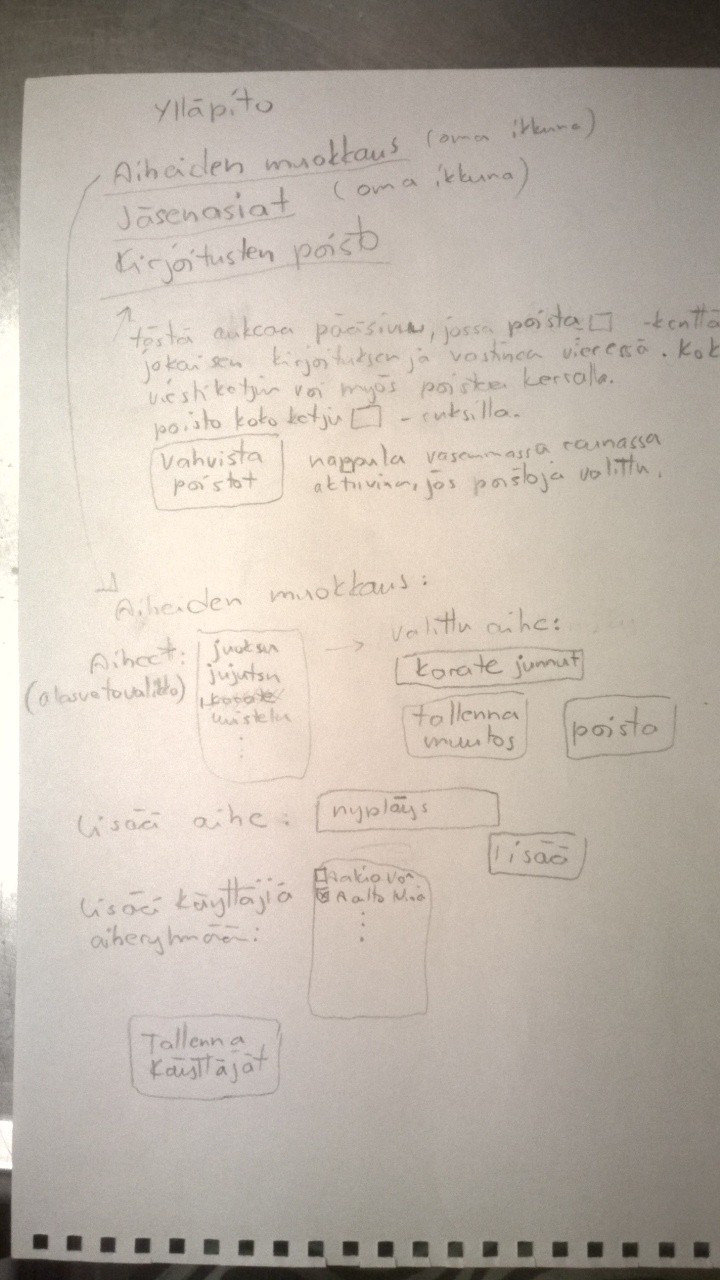 Ylläpito
Aiheiden muokkaus (oma ikkuna)
Jäsenasiat (oma ikkuna)
Kirjoitusten poisto
tästä aukeaa pääsivu, jossa poista -kenttä
jokaisen kirjoituksen ja vastineen vieressä. Kok
viestiketjun voi myös poistaa kerralla.
poisto koko ketju - ruksilla.
Vahvista
poistot
nappula vasemmassa reunassa
aktiivinen, jos poistoja valittu.
Aiheiden muokkaus:
Aiheet:
(alasvetovalikko)
juoksu
jujutsu
karate
uistelu
valittu aihe:
karate junnut
tallenna
muutos
poista
lisää aihe:
nypläys
lisää
lisää käyttäjiä
aiheryhmään:
Aalto Nina
Tallenna
Käyttäjät